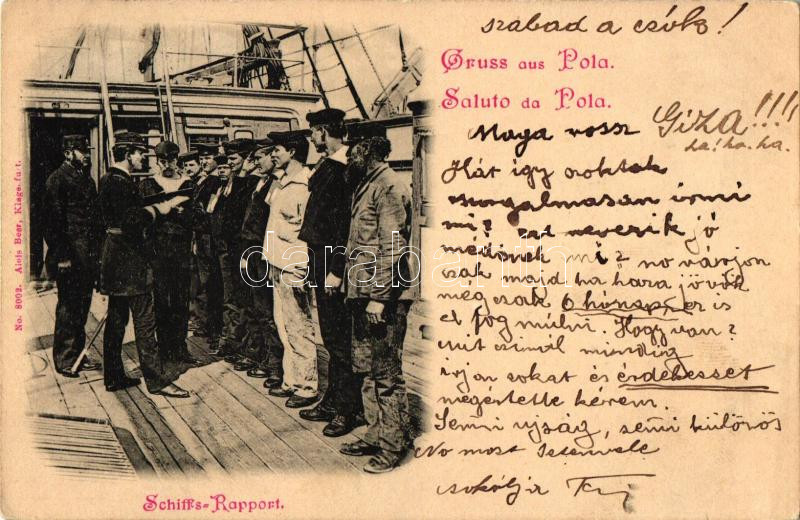 szabad a csók!
Gruss aus Pola.
Saluto da Pola.
Maga rossz Giza!!!!
ha! ha. ha.
Hát így szoktak
szorgalmasan irni
mi? ezt nevezik jó
mi? no várjon
csak majd ha haza jövök
még csak 6 hónap, ez is
el fog múlni. Hogy van?
mit csinál mindig
irjon sokat és érdekesset
megértette kérem.
Semmi ujság, semmi különös
No most Istenvele
csókolja
Schiffs-Rapport.
No. 8002. Alois Beer, Klagenfurt.
darabanth